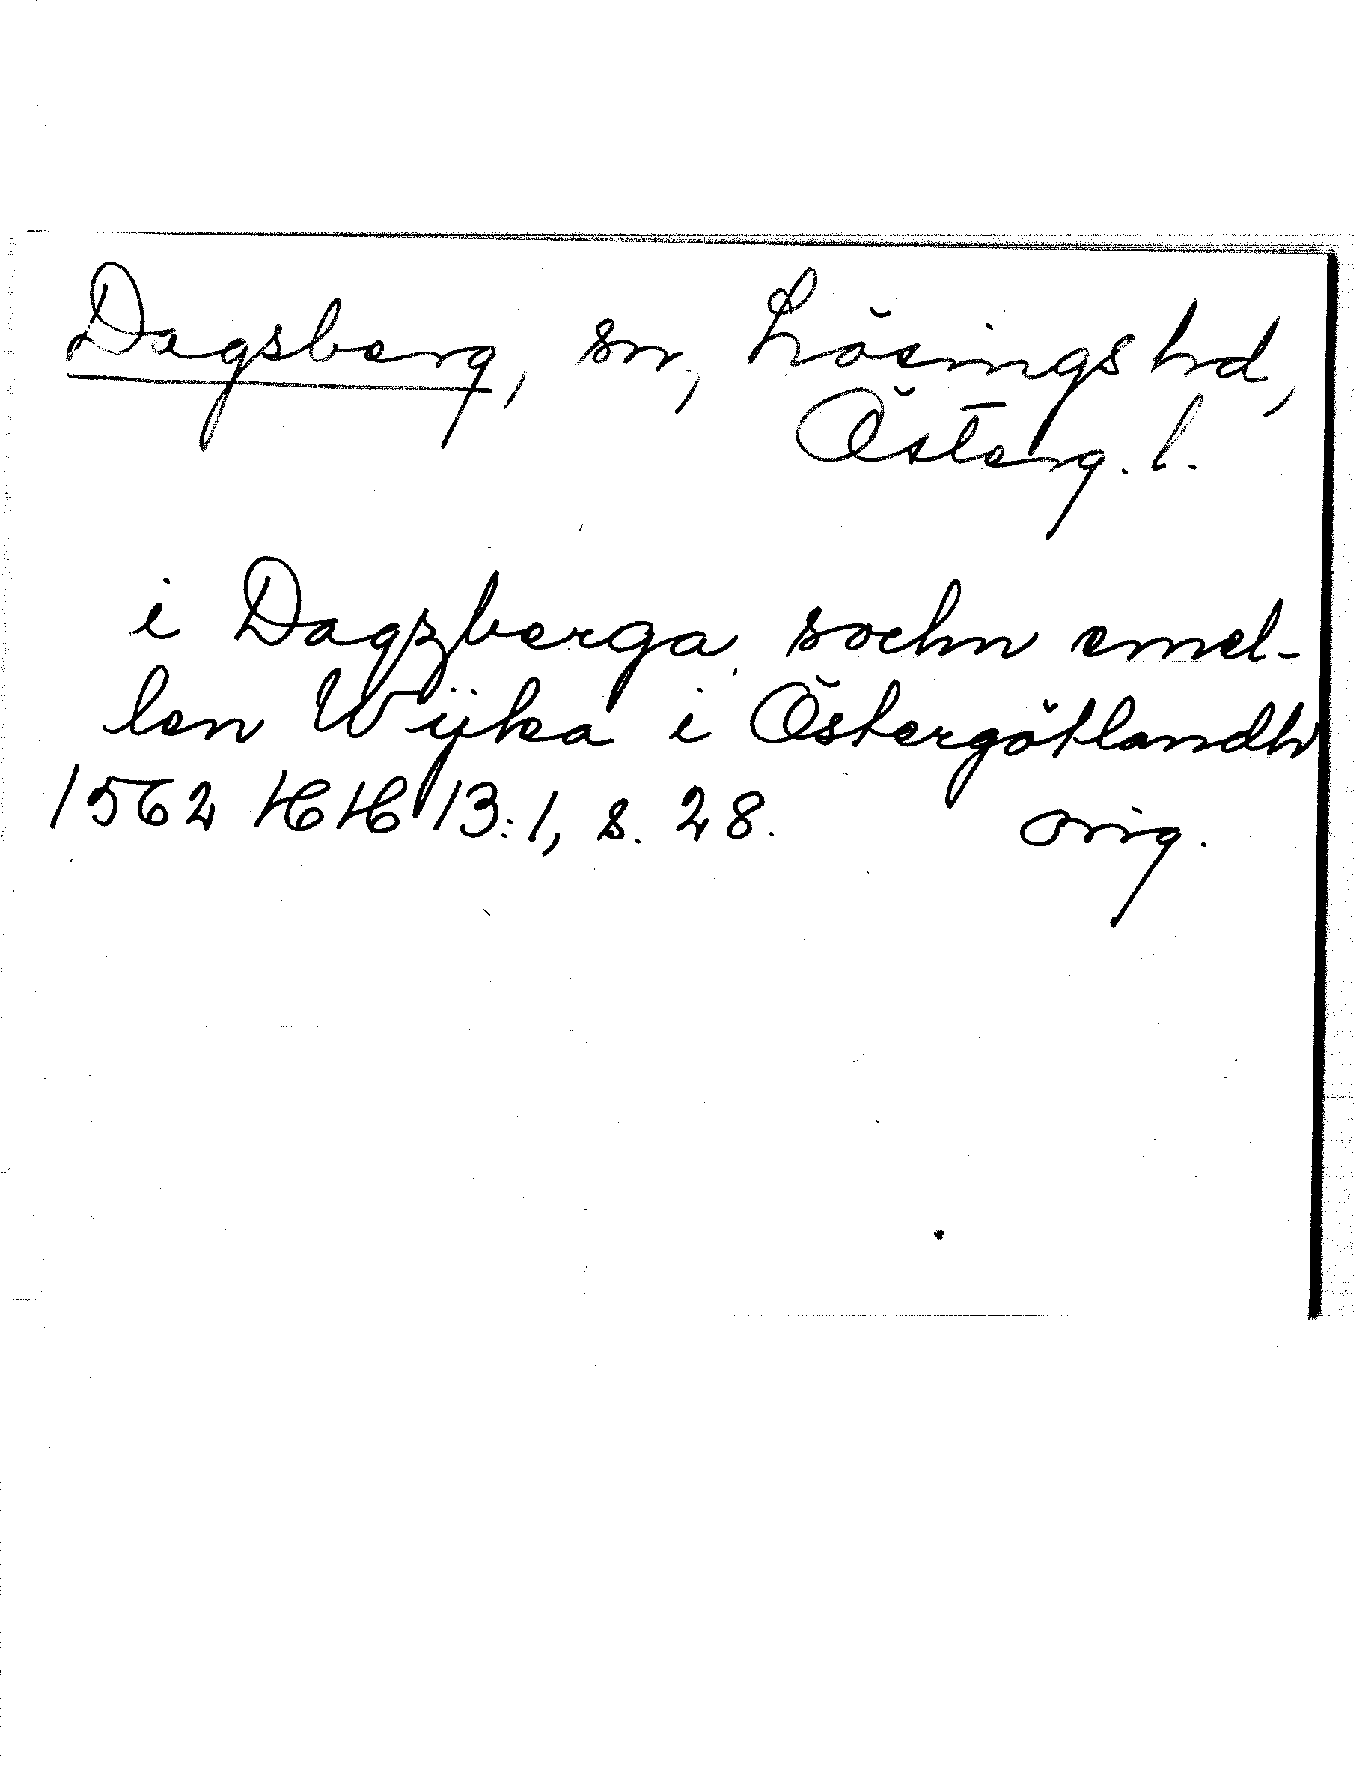 Dagsberg, sn, Lösings hd,
Österg. l.
i Dagzberga sochn emel-
len Wijka i Östergötlandh
1562 HH 13:1, s. 28. orig.